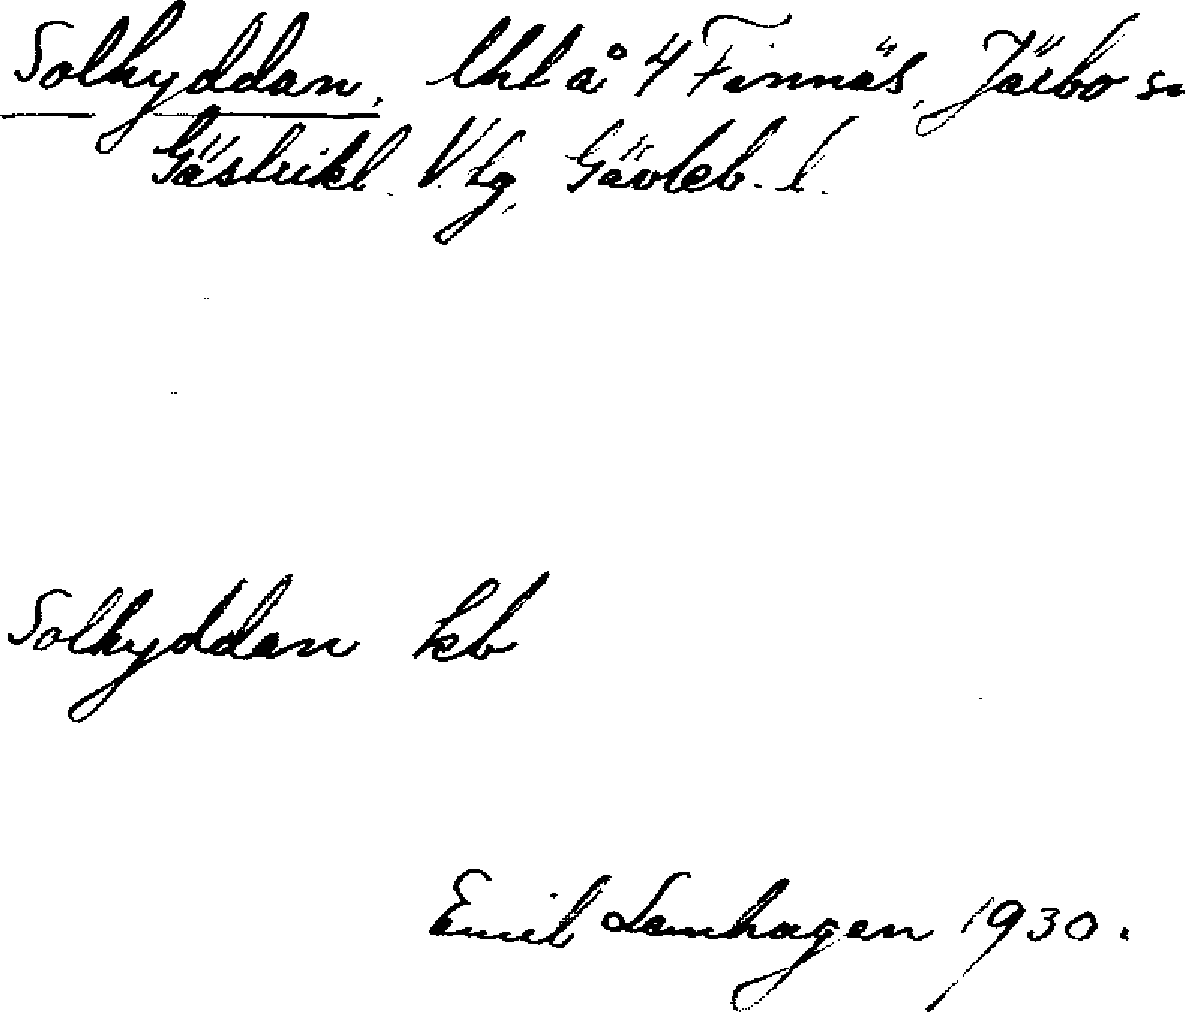 Solhyddan, lht å 4 Finnäs, Järbo sn
Gästrikl. V. tg, Gävleb. l.
Solhyddan kb
Emil Lamhagen 1930.